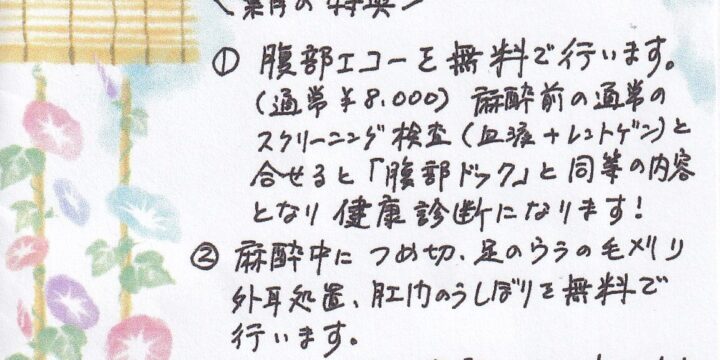 ＼案内の特典／
① 腹部エコーを無料で行います。
(通常¥8,000) 麻酔前の通常の
スクリーニング検査(血液+レントゲン)と
合せると「腹部ドック」と同等の内容
となり健康診断になります!
② 麻酔中に つめ切、足のウラの毛メリリ
外耳処置、肛門のうしぼりを無料で
行います。